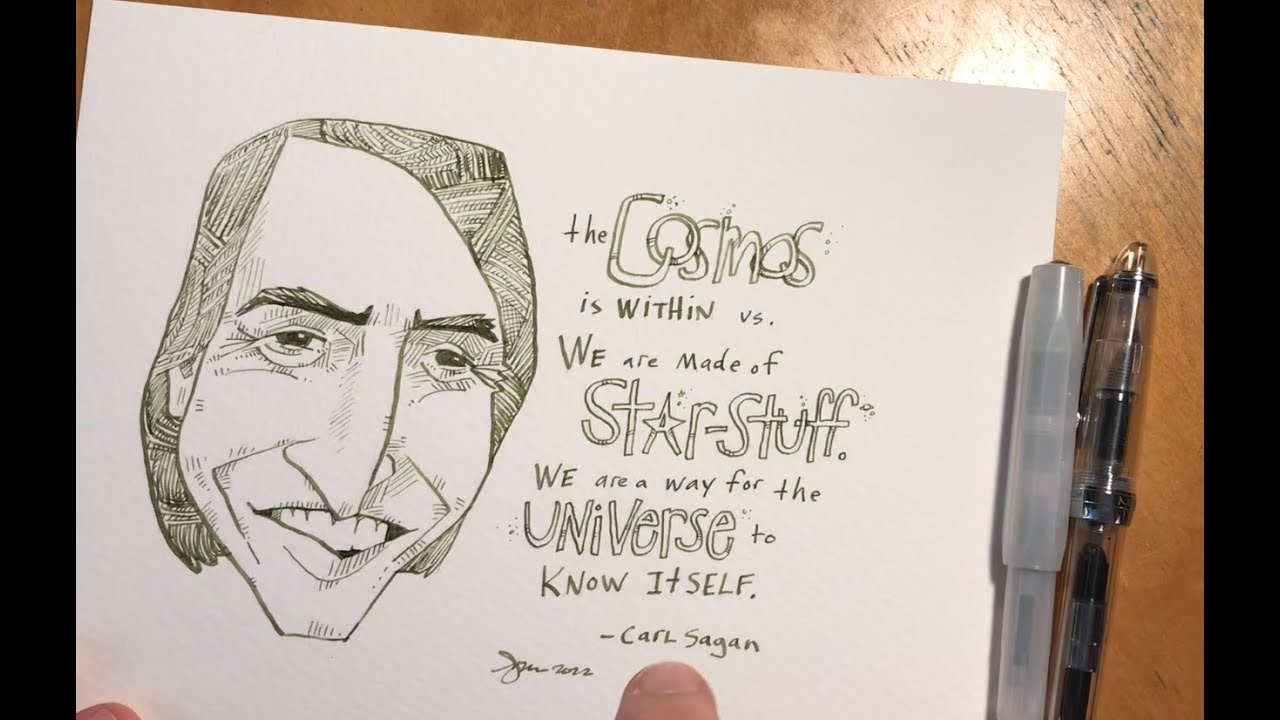 the Cosmos
is WITHIN us.
WE are Made of
Star-Stuff.
WE are a way for the
UNiVerse to
KNOW ItSELF.
-CarL Sagan
2022